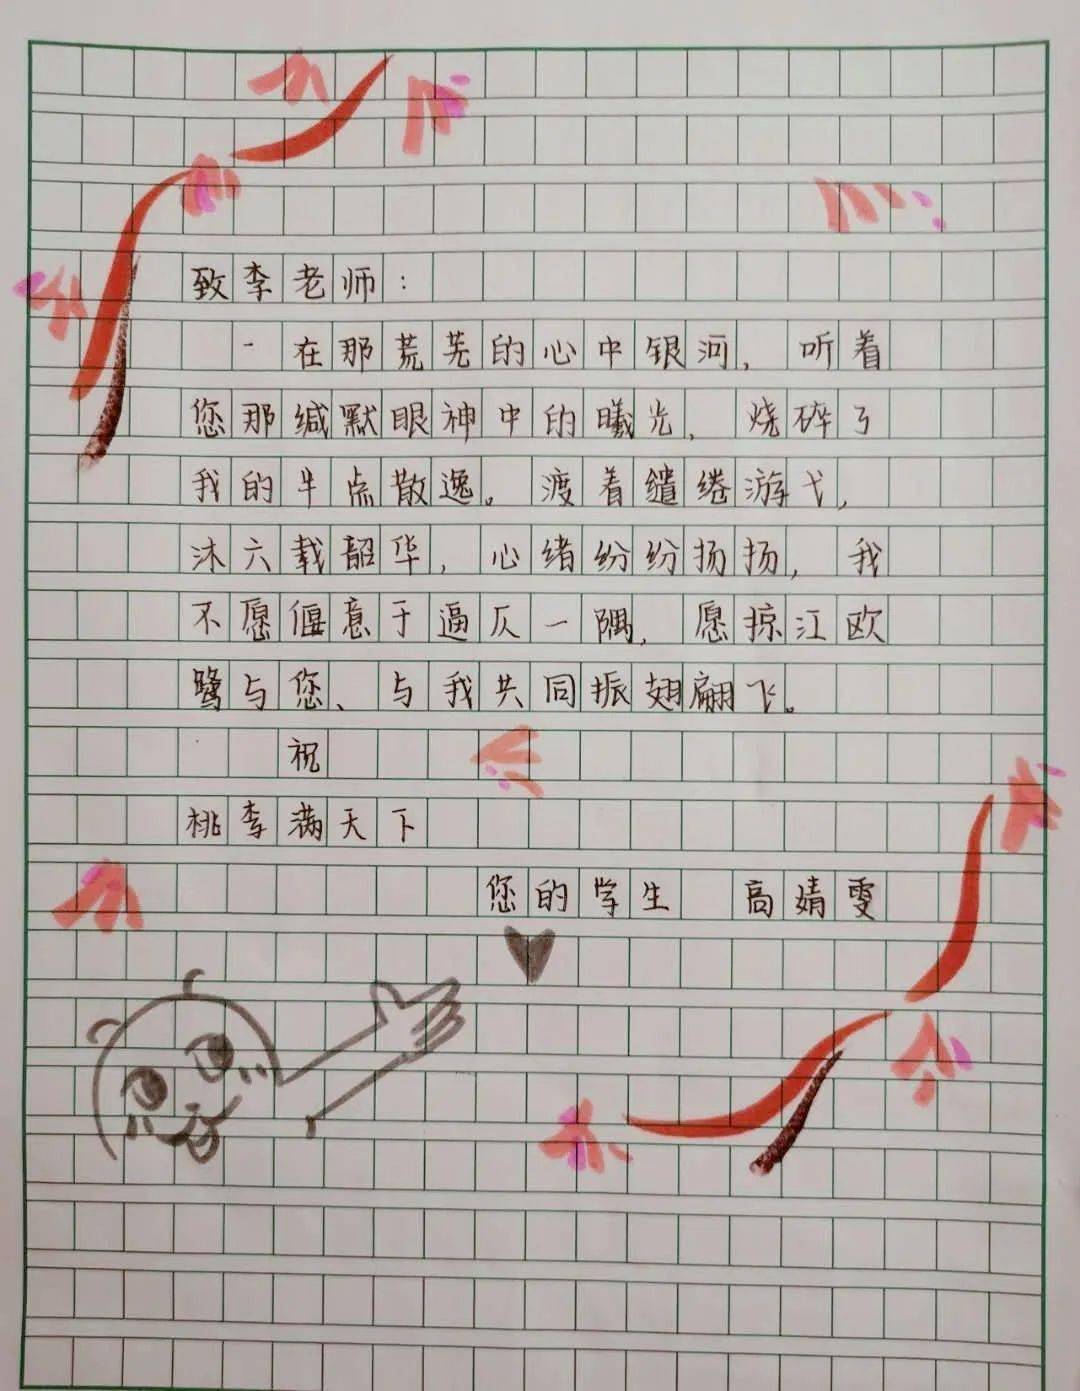 致李老师:
一在那荒芜的心中银河，听着
您那缄默眼神中的曦光，烧碎了
我的半点散逸。渡着缱绻游弋，
沐六载韶华，心绪纷纷扬扬，我
不愿偃意于逼仄一隅，愿掠江欧
鹭与您、与我共同振翅翩飞。
祝
桃李满天下
您的学生 高婧雯